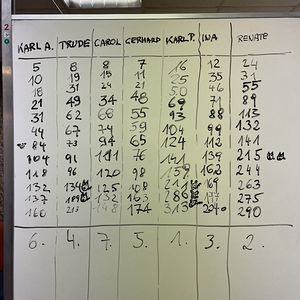 KARL A. TRUDE CAROL GERHARD KARL T. INA RENATE
5 8 8 7 16 12 24
10 19 15 11 25 35 31
18 31 24 21 50 46 55
21 49 34 48 69 71 89
31 62 68 55 93 88 113
44 67 74 59 104 99 132
84 73 94 65 124 112 141
104 91 111 76 141 139 215
118 96 120 98 159 162 244
132 134 125 108 211 169 263
137 189 132 163 286 177 275
160 213 148 174 313 290
6. 4. 7. 5. 1. 3. 2.